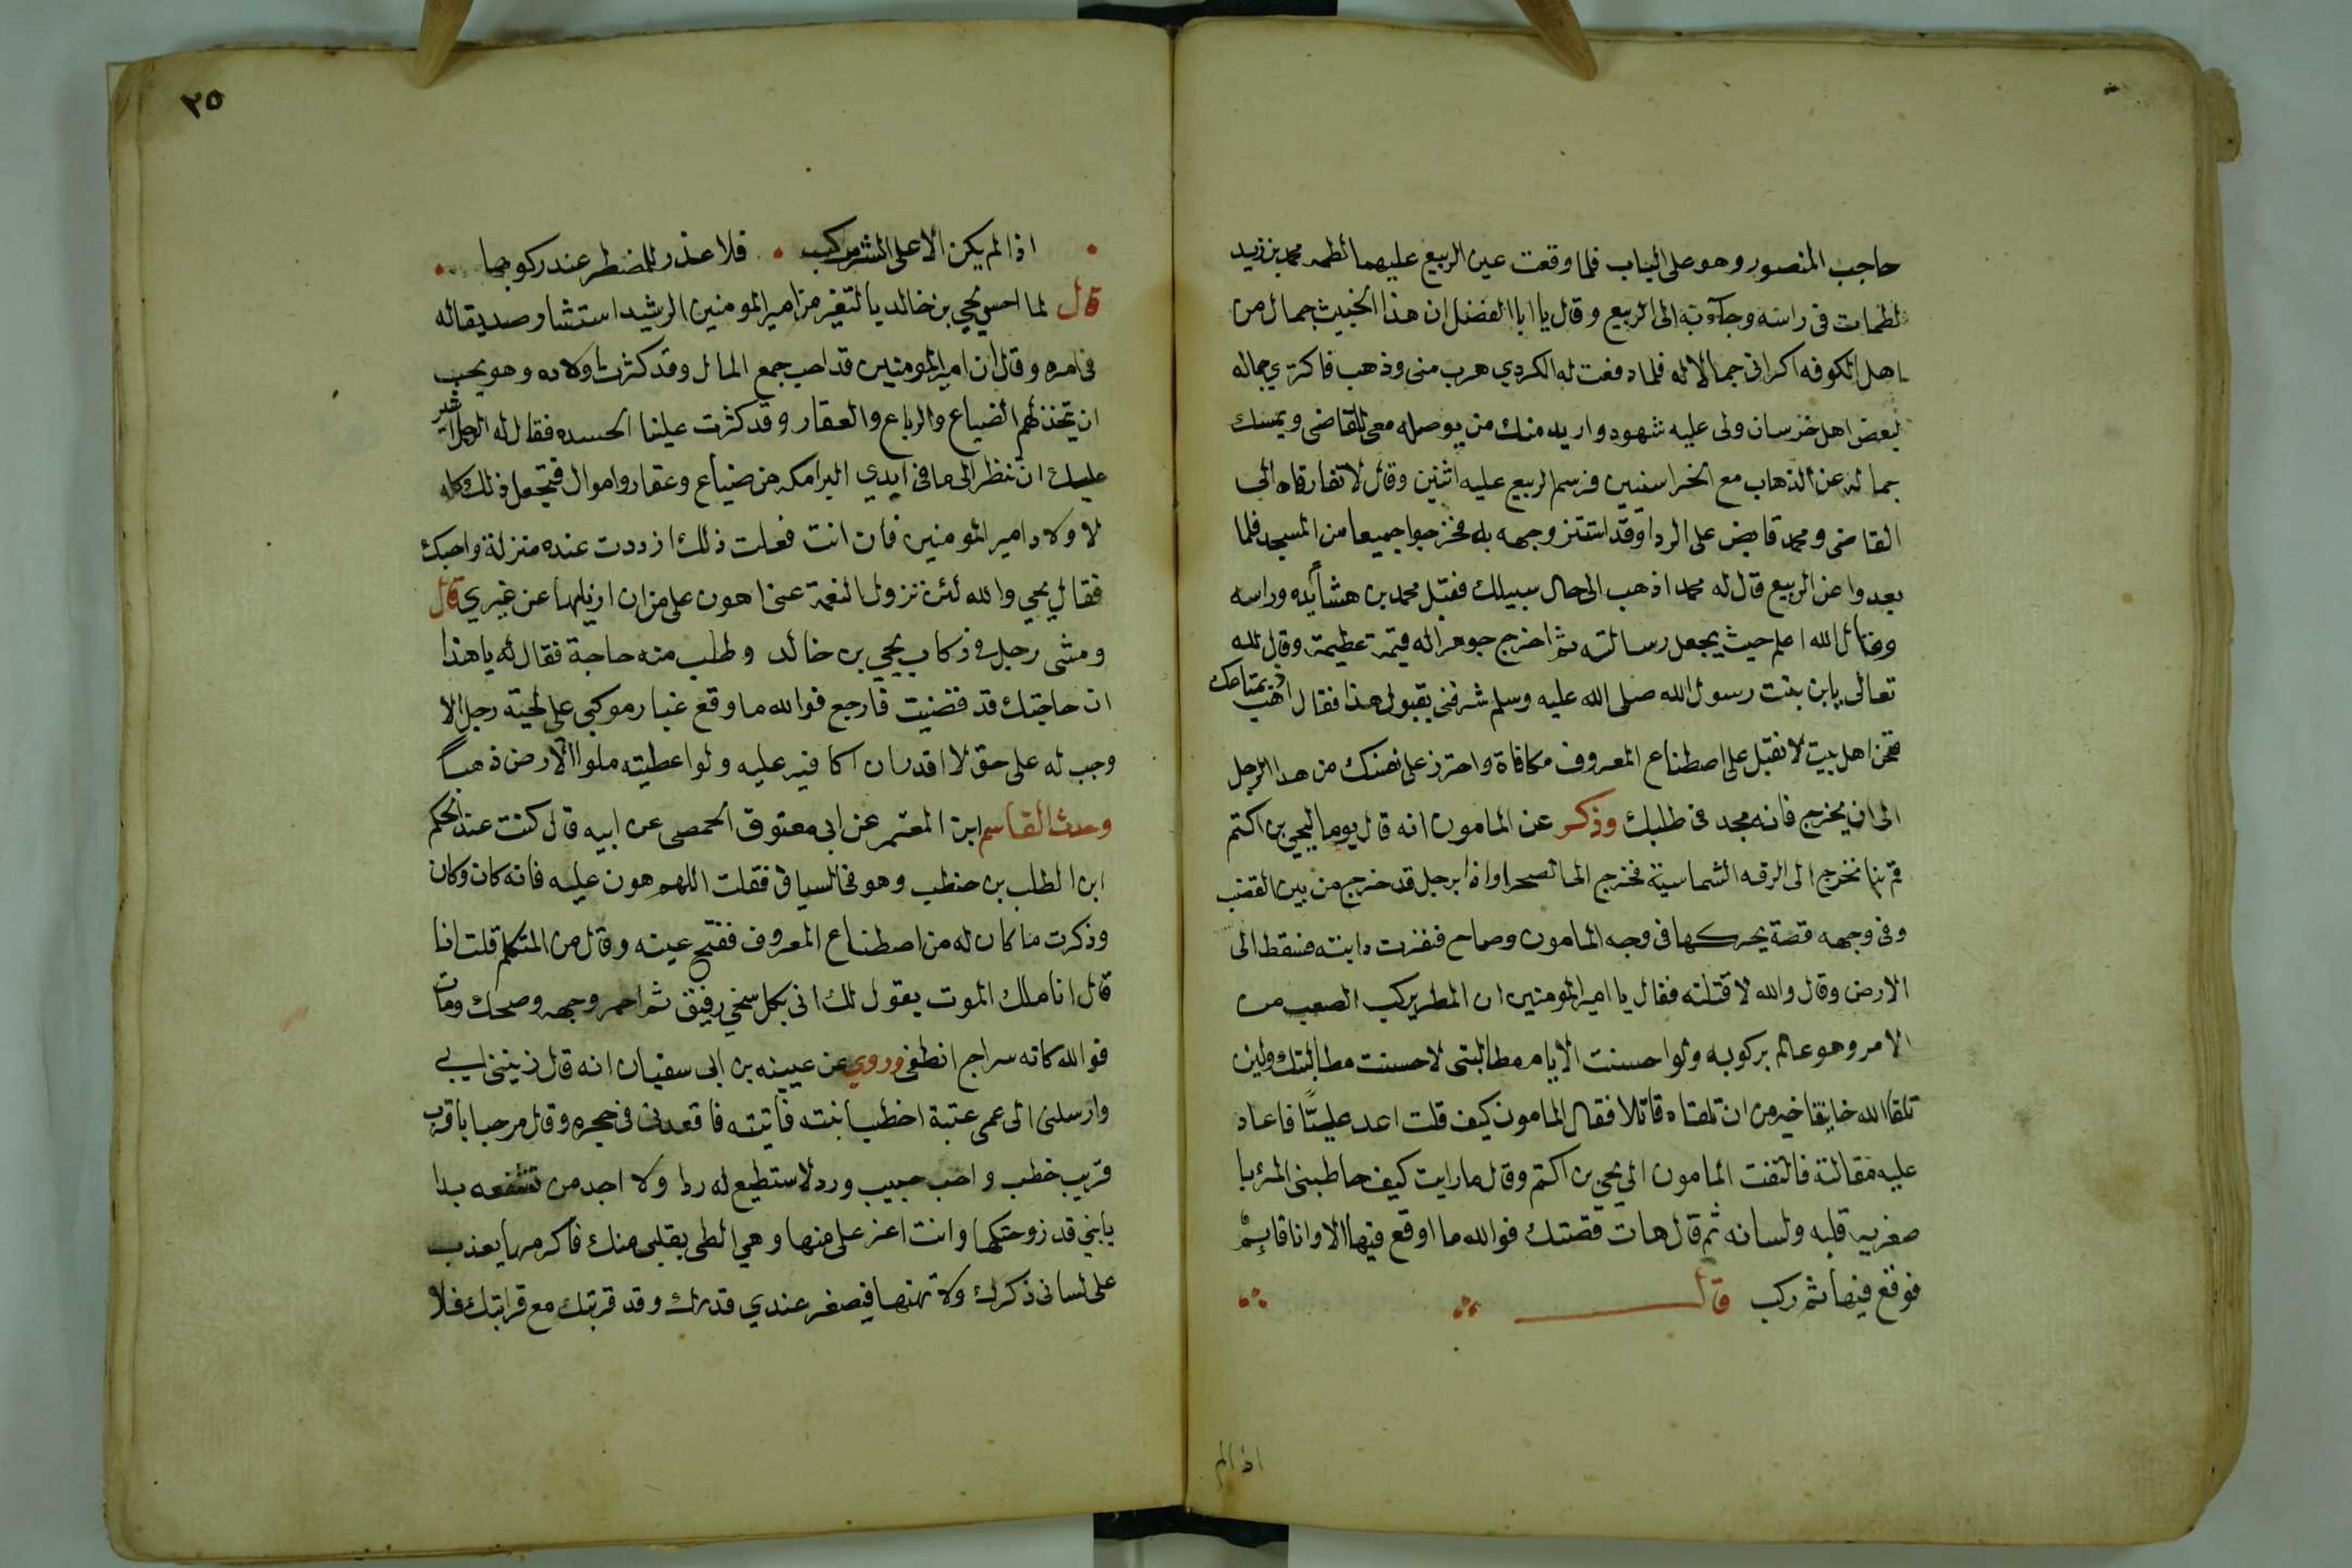 حاجب المنصور وهو على الباب فلما وقعت عين الربيع عليهما لطمه محمد بن زيد
لطمات فى راسه وجآء به الى الربيع وقال يا ابا الفضل ان هذا الخبيث جمال من
اهل الكوفه اكرانى جمالا له فلما دفعت له الكردي هرب منى وذهب فاكترى جماله
لبعض اهل خرسان ولى عليه شهود واريد منك من يوصله معى للقاضى ويمسك
جماله عن الذهاب مع الخراسنيين فرسم الربيع عليه اثنين وقال لا تفارقاه الى
القاضى ومحمد قابض على الردا وقد استتر وجهه به فخرجوا جميعا من المسجد فلما
بعدوا عن الربيع قال له محمد اذهب الى حال سبيلك فقبل محمد بن هشا يده وراسه
وقال الله اعلم حيث يجعل رسالته ثم اخرج جوهرا له قيمة عظيمة وقال لله
تعالى يابن بنت رسول الله صلى الله عليه وسلم شرفنى بقبول هذا فقال اذهب بمتاعك
فنحن اهل بيت لا نقبل على اصطناع المعروف مكافاة واحترز على نفسك من هذا الرجل
الى ان يخرج فانه مجد فى طلبك وذكر عن المامون انه قال يوما ليحيى بن اكتم
قم بنا نخرج الى الرقه الشماسية فخرج الى الصحرا واذا برجل قد خرج من بين القضب
وفى وجهه قصة يحركها فى وجه المامون وصاح فنفرت دابته فسقط الى
الارض وقال والله لا قتلنه فقال يا امير المومنين ان المطر يركب الصعب من
الامر وهو عالم بركوبه ولو احسنت الايام مطالبتى لاحسنت مطالبتك ولين
تلقا الله خايفا خير من ان تلقاه قاتلا فقال المامون كيف قلت اعد عليتا فاعاد
عليه مقالته فالتفت المامون الي يحي بن اكتم وقال ما رايت كيف خاطبنى المربا
صغريه قلبه ولسانه ثم قال هات قصتك فوالله ما اوقع فيها الا وانا قايم
فوقع فيها ثم ركب قال
اذا لم
٢٥
اذا لم يكن الا على الشر مركب فلا عذر للمضطر عند ركوبها
قال لما احس يحي بن خالد يالتغير من امير المومنين الرشيد استشار صديقا له
فى امره وقال ان امير المومنين قد احب جمع المال وقد كثرت اولاده وهو يحب
ان يتخذ لهم الضياع والرباع والعقار وقد كثرت علينا الحسده فقال له الرجل اشير
عليك ان تنظر الى ما فى ايدي البرامكه من ضياع وعقار واموال فتجعل ذلك كله
لاولاد امير المومنين فان انت فعلت ذلك ازددت عنده منزلة واحبك
فقال يحي والله لئن تزول النعمة عنى اهون على من ان ازيلها عن غيري قال
ومشى رجل فى ركاب يحي بن خالد وطلب منه حاجة فقال له يا هذا
ان حاجتك قد قضيت فارجع فوالله ما وقع غبار موكبى على لحية رجل الا
وجب له على حق لا اقدر ان اكافيه عليه ولو اعطيته ملوا الارض ذهبا
وحدث القاسم ابن المعتمر عن ابى معتوق الحمصى عن ابيه قال كنت عند الحكم
ابن الطلب بن حنطب وهو فى السياق فقلت اللهم هون عليه فانه كان وكان
وذكرت ما كان له من اصطناع المعروف ففتح عينه وقال من المتكلم قلت انا
قال انا ملك الموت يقول لك انى بكل سخي رفيق ثم احمر وجهه وضحك ومات
فوالله كانه سراج انطفى وروي عن عيينه بن ابى سفيان انه قال زيننى ابى
وارسلنى الى عمى عتبة اخطب ابنته فاتيته فاقعدنى فى حجره وقال مرحبا باقرب
قريب خطب واحب حبيب ورد لا استطيع له ردا ولا اجد من تشفعه بدا
يا بني قد زوجتكها وانت اعز على منها وهي الطى بقلبى منك فاكرمها يعذب
على لسانى ذكرك ولا تهنها فيصغر عندي قدرك وقد قربتك مع قرابتك فلا